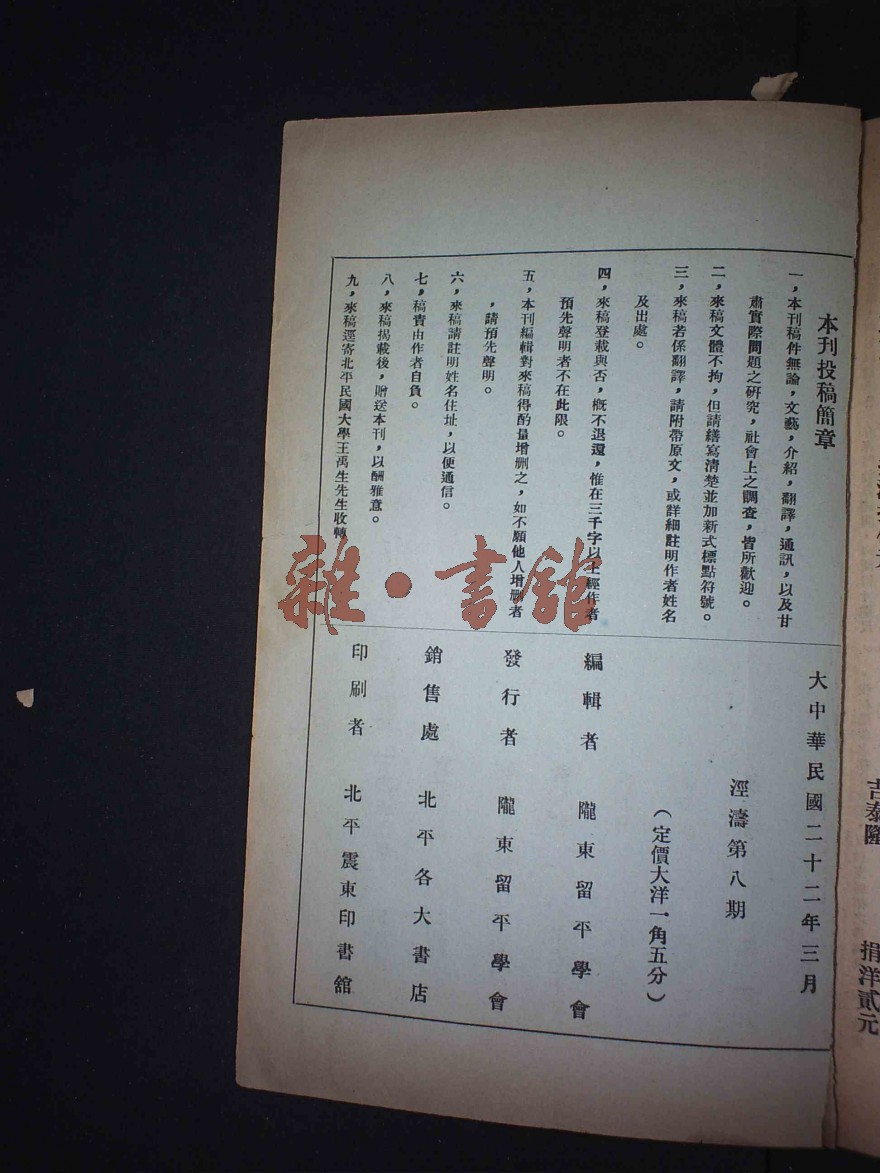 本刊投稿簡章
一，本刊稿件無論，文藝，介紹，翻譯，通訊，以及甘
肅實際問題之研究，社會上之調查，皆所歡迎。
二，來稿文體不拘，但請繕寫清楚並加新式標點符號。
三，來稿若係翻譯，請附帶原文，或詳細註明作者姓名
及出處。
四，來稿登載與否，概不退還，惟在三千字以上經作者
預先聲明者不在此限。
五，本刊編輯對來稿得酌量增刪之，如不願他人增刪者
，請預先聲明。
六，來稿請註明姓名住址，以便通信。
七，稿責由作者自負。
八，來稿揭載後，贈送本刊，以酬雅意。
九，來稿逕寄北平民國大學王禹生先生收轉
大中華民國二十二年三月
涇濤第八期
（定價大洋一角五分）
編輯者 隴東留平學會
發行者 隴東留平學會
銷售處 北平各大書店
印刷者 北平震東印書館
雜·書館
吉泰隆 捐洋貳元